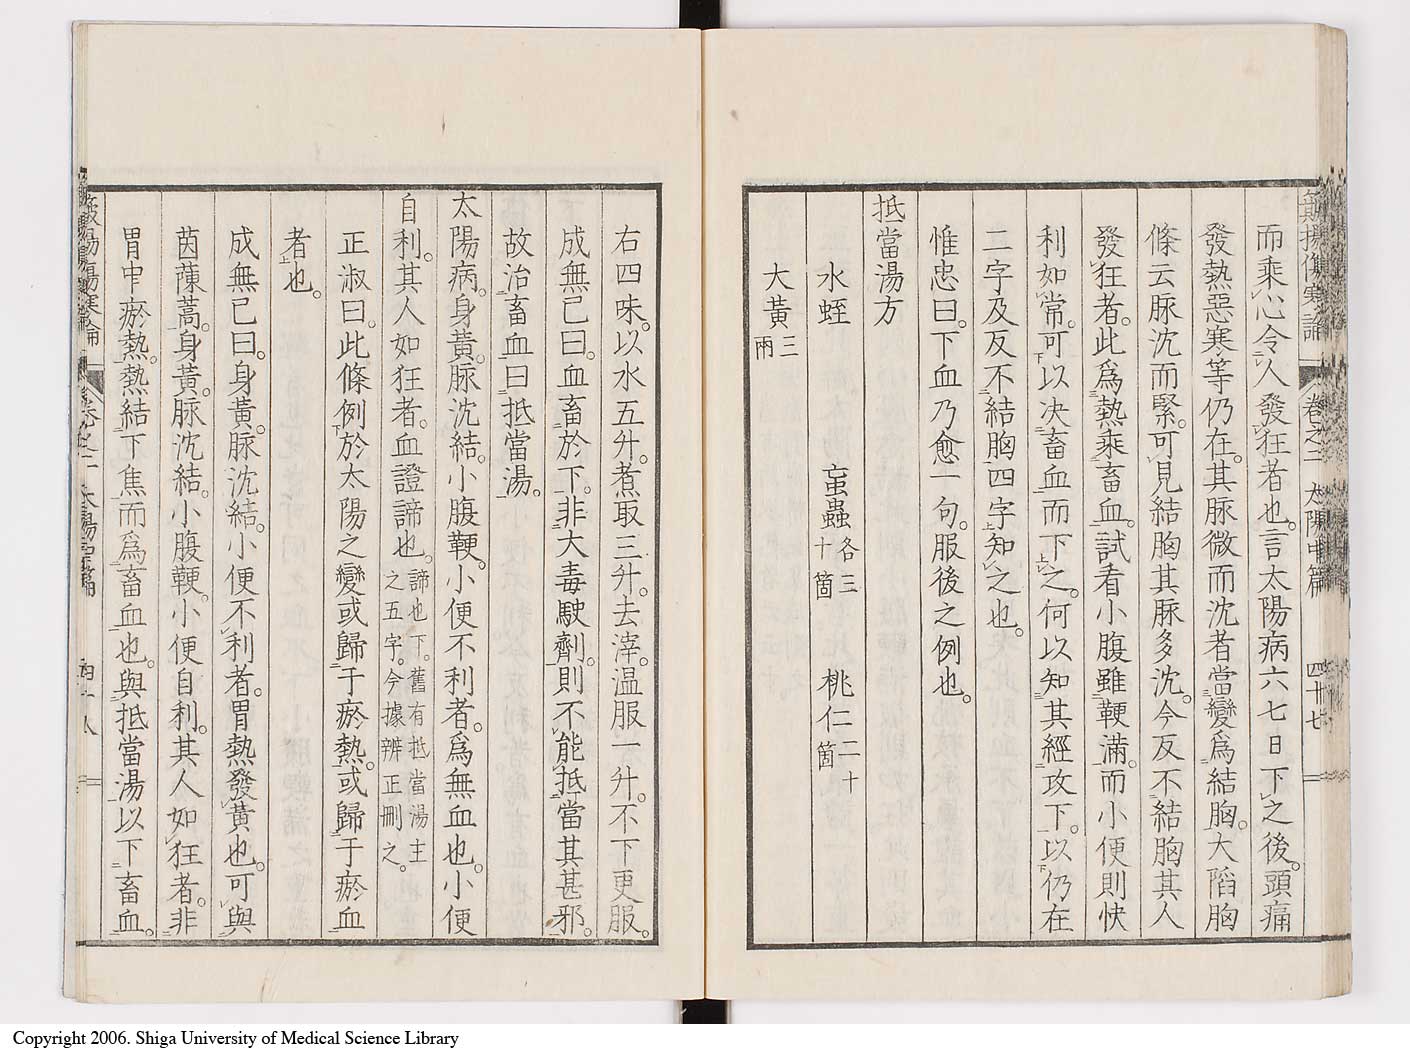 而乘心令人發狂者也。言太陽病六七日下之後。頭痛
發熱惡寒等仍在。其脉微而沈者當變爲結胸。大陷胸
條云脉沈而緊。可見結胸其脉多沈。今反不結胸其人
發狂者。此爲熱乘畜血。試看小腹雖鞕滿。而小便則快
利如常。可以决畜血而下之。何以知其經攻下。以仍在
二字及反不結胸四字知之也。
惟忠曰。下血乃愈一句。服後之例也。
抵當湯方
水蛭 䖟蟲各三十箇 桃仁二十箇
大黃三兩
卷之二 太陽中篇 四十七
右四味。以水五升。煮取三升。去滓。温服一升。不下更服。
成無己曰。血畜於下。非大毒駛劑。則不能抵當其甚邪。
故治畜血曰抵當湯。
太陽病。身黃。脉沈結。小腹鞕。小便不利者。爲無血也。小便
自利。其人如狂者。血證諦也。諦也下。舊有抵當湯主之五字。今據辨正刪之。
正淑曰。此條例於太陽之變或歸于瘀熱。或歸于瘀血
者也。
成無己曰。身黃。脉沈結。小便不利者。胃熱發黃也。可與
茵蔯蒿。身黃。脉沈結。小腹鞕。小便自利。其人如狂者。非
胃中瘀熱。熱結下焦而爲畜血也。與抵當湯以下畜血。
Copyright 2006. Shiga University of Medical Science Library